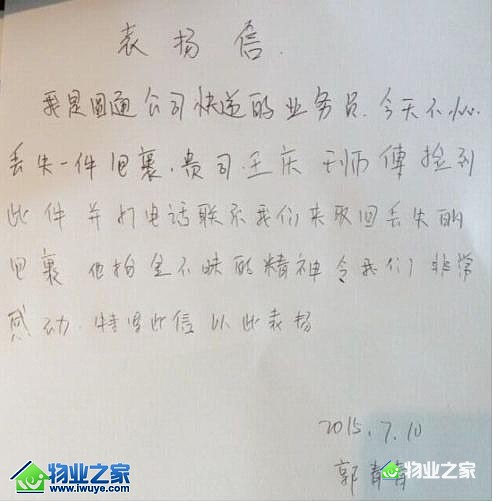 表扬信.
我是圆通公司快递的业务员.今天不小心.
丢失一件包裹.贵司.王庆 王师傅捡到
此件并打电话联系我们来取回丢失的
包裹 他拾金不昧的精神令我们非常
感动.特写此信以此表扬
2015.7.10
郭
物业之家
www.iwuye.com
物业之家